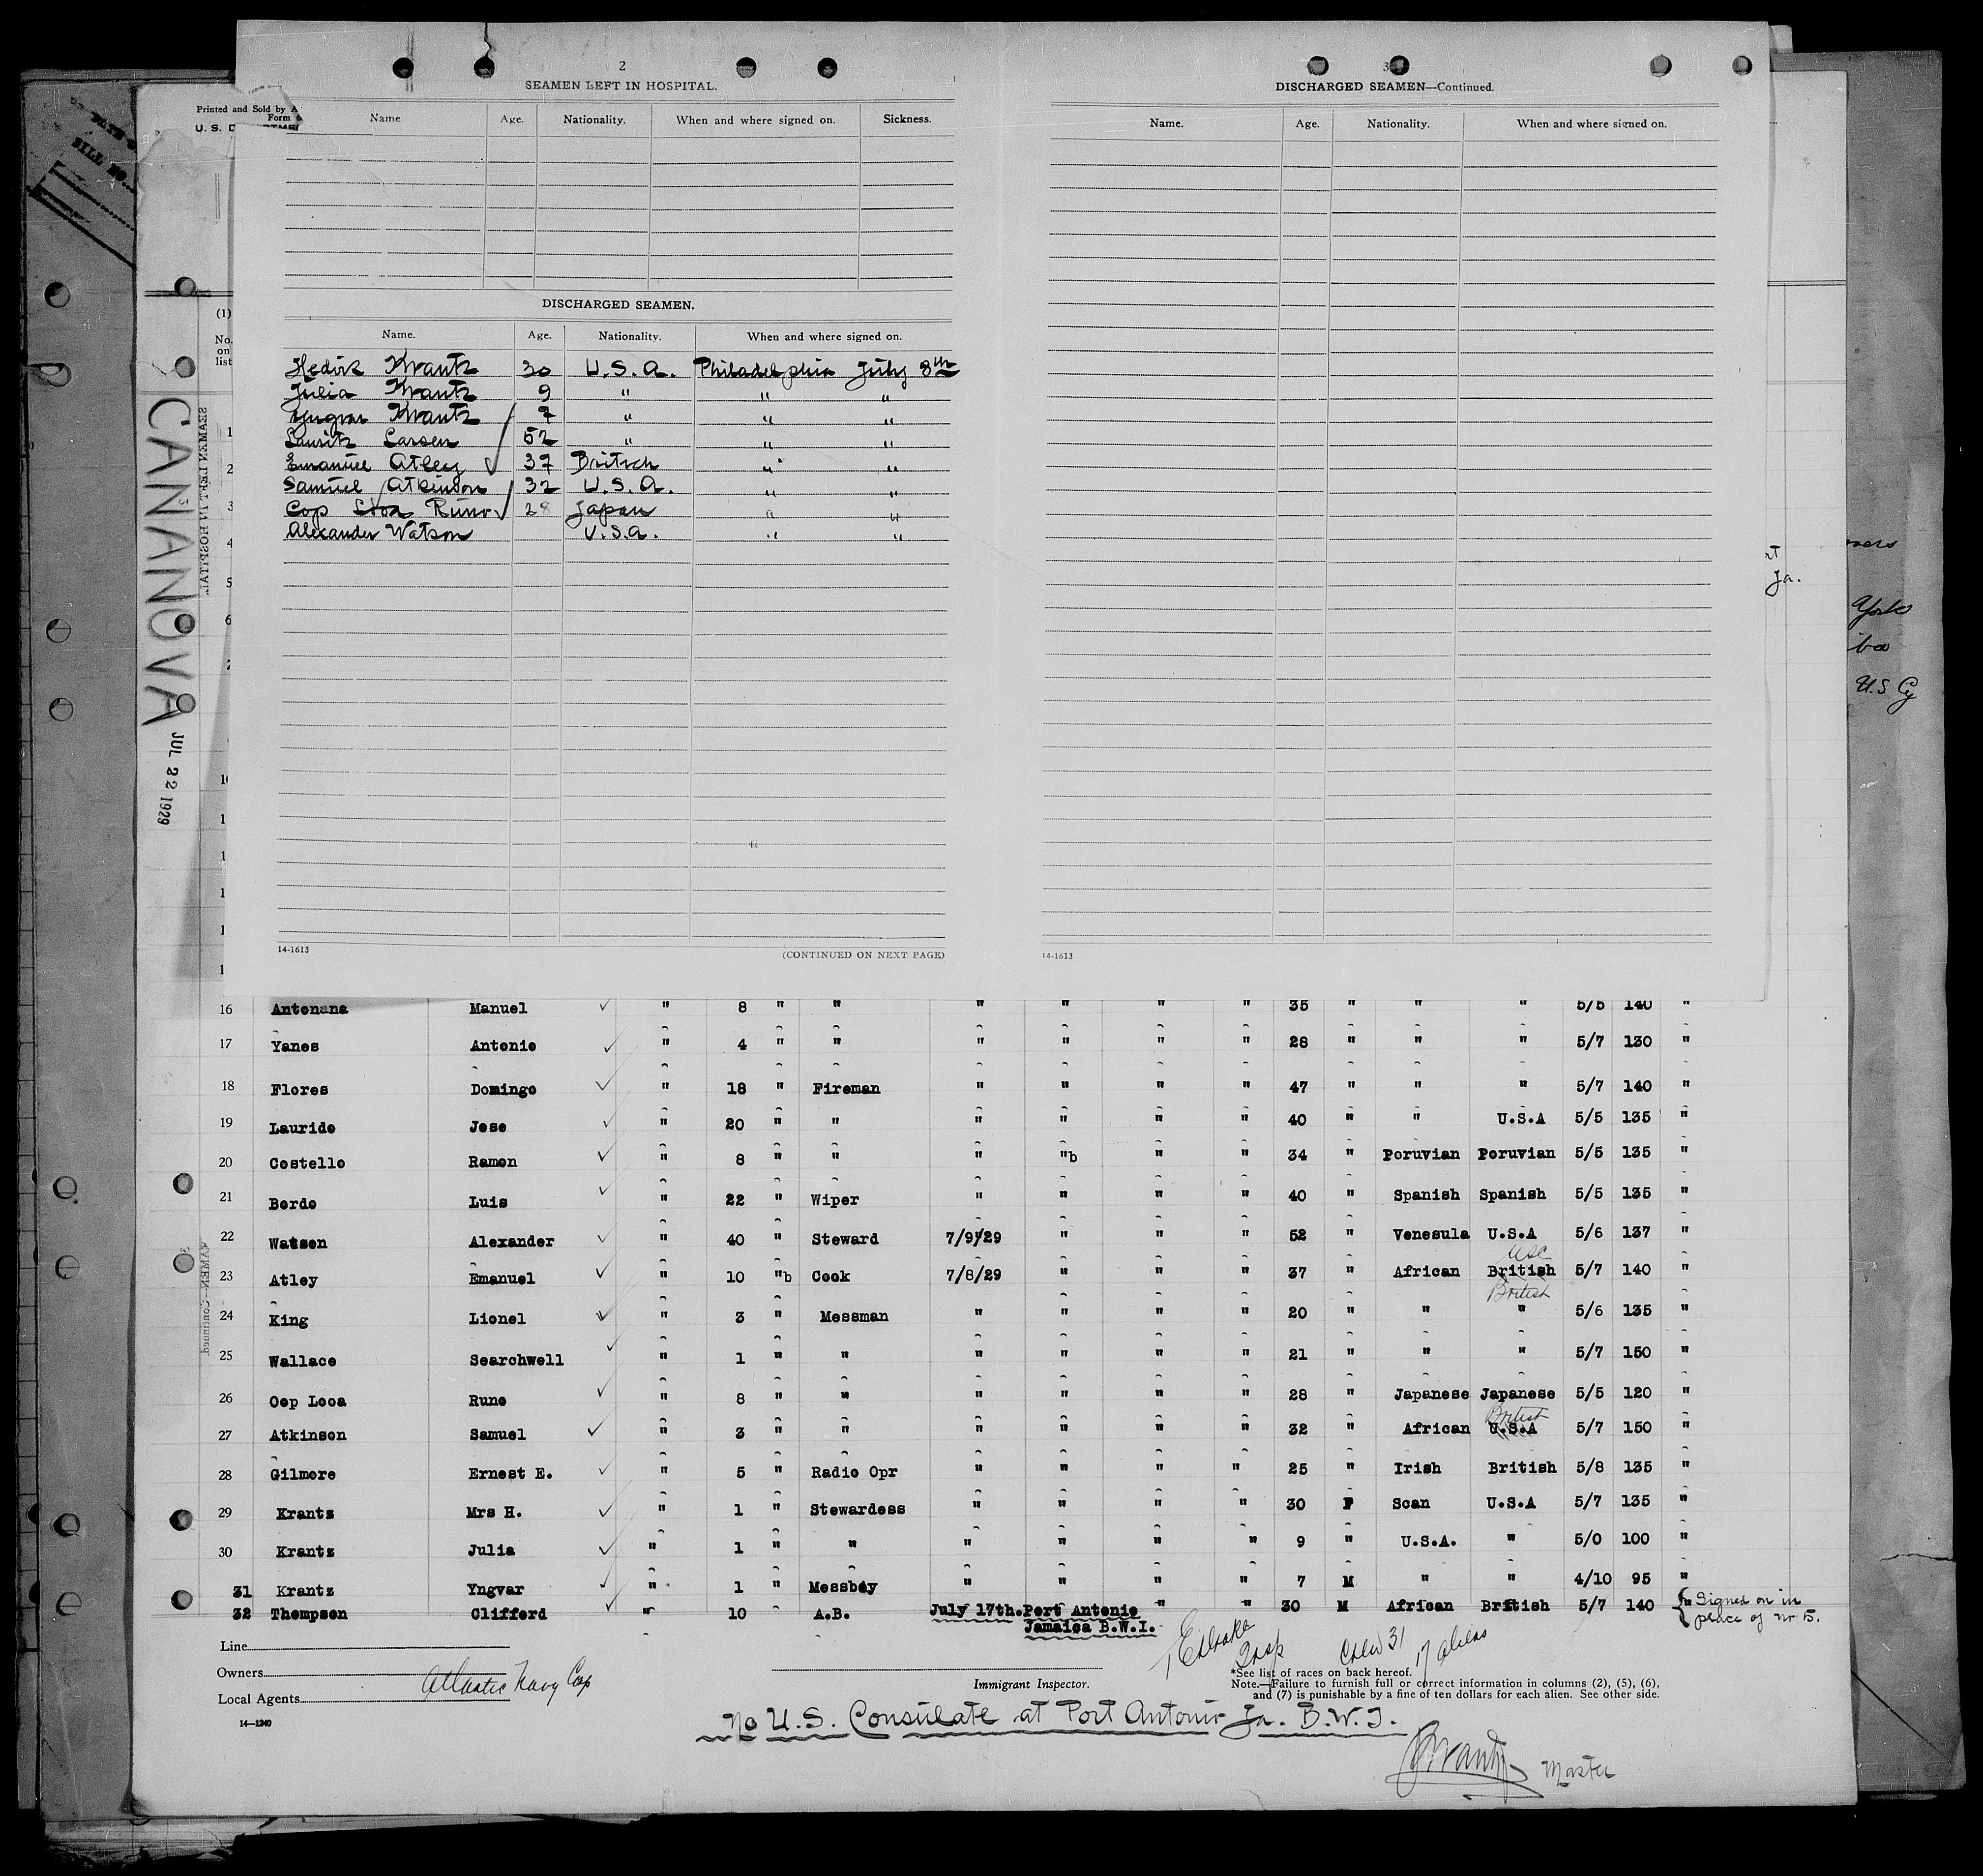 2
SEAMEN LEFT IN HOSPITAL.
Name. Age. Nationality. When and where signed on. Sickness.
DISCHARGED SEAMEN.
Name. Age. Nationality. When and where signed on.
Hedvik Krantz 30 U.S.A. Philadelphia July 8th
Julia Krantz 9 " " "
Yngvar Krantz 7 " " "
Lauritz Larsen 52 " " "
Emanuel Atley 37 Britsch " "
Samuel Atkinson 32 U.S.A. " "
Oop Looa Runo 28 Japan " "
Alexander Watson U.S.A. " "
14-1613
(CONTINUED ON NEXT PAGE)
3
DISCHARGED SEAMEN—Continued.
Name. Age. Nationality. When and where signed on.
14-1613
Printed and Sold by A
Form 6
U. S. D
BILL NO.
(1)
No.
on
list
CANANOVA
JUL 22 1929
SEAMEN LEFT IN HOSPITAL
1
2
3
4
5
6
rt
Ja.
York
U.S Cy
16 Antonana Manuel ✓ " 8 " " " " " " 35 " " " 5/5 140 "
17 Yanes Antonio ✓ " 4 " " " " " " 28 " " " 5/7 130 "
18 Flores Domingo ✓ " 18 " Fireman " " " " 47 " " " 5/7 140 "
19 Laurido Jose ✓ " 20 " " " " " " 40 " " U.S.A 5/5 135 "
20 Costello Ramon ✓ " 8 " " " "b " " 34 " Poruvian Poruvian 5/5 135 "
21 Bordo Luis ✓ " 22 " Wiper " " " " 40 " Spanish Spanish 5/5 135 "
22 Watson Alexander ✓ " 40 " Steward 7/9/29 " " " 52 " Venesula U.S.A 5/6 137 "
USC
23 Atley Emanuel ✓ " 10 "b Cook 7/8/29 " " " 37 " African British 5/7 140 "
British
24 King Lionel ✓ " 3 " Messman " " " " 20 " " " 5/6 135 "
25 Wallace Searchwell ✓ " 1 " " " " " " 21 " " " 5/7 150 "
26 Oop Looa Runo ✓ " 8 " " " " " " 28 " Japanese Japanese 5/5 120 "
British
27 Atkinson Samuel ✓ " 3 " " " " " " 32 " African U.S.A 5/7 150 "
28 Gilmore Ernest E. ✓ " 5 " Radio Opr " " " " 25 " Irish British 5/8 135 "
29 Krantz Mrs H. ✓ " 1 " Stewardess " " " " 30 F Scan U.S.A 5/7 135 "
30 Krantz Julia ✓ " 1 " " " " " " 9 " U.S.A. " 5/0 100 "
31 Krantz Yngvar ✓ " 1 " Messboy " " " " 7 M " " 4/10 95 "
32 Thompson Clifford ✓ " 10 A.B. July 17th. Port Antonio " " 30 M African British 5/7 140 " Signed on in
Jamaica B.W.I. place of nr 5.
Insp Crew 31 17 aliens
Line
Owners
Local Agents Atlantic Navg Cop
14—1240
Immigrant Inspector.
*See list of races on back hereof.
Note.—Failure to furnish full or correct information in columns (2), (5), (6),
and (7) is punishable by a fine of ten dollars for each alien. See other side.
No U.S. Consulate at Port Antonio Ja. B.W.I.
Krantz Master